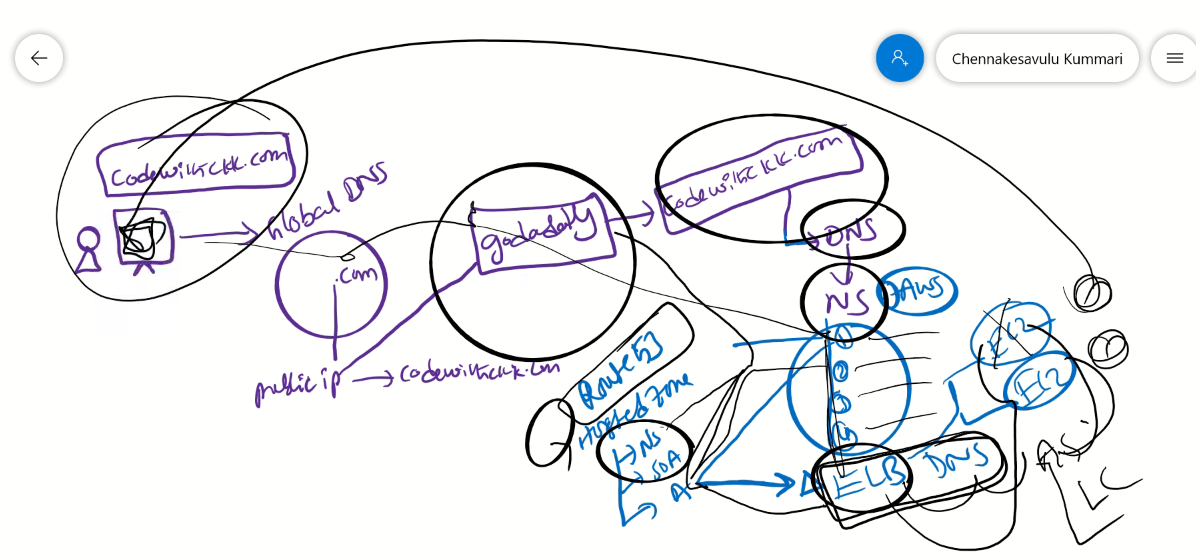 Chennakesavulu Kummari
codewithckk.com
Global DNS
.com
public ip → codewithckk.com
godaddy
codewithckk.com
DNS
NS
AWS
1
2
3
4
Route53
Hosted Zone
NS
SOA
A
ELB DNS
EC2
EC2
LC